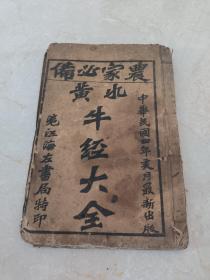 農家必備
中華民國四年夏月最新出版
水黃
牛經大全
海左書局特印